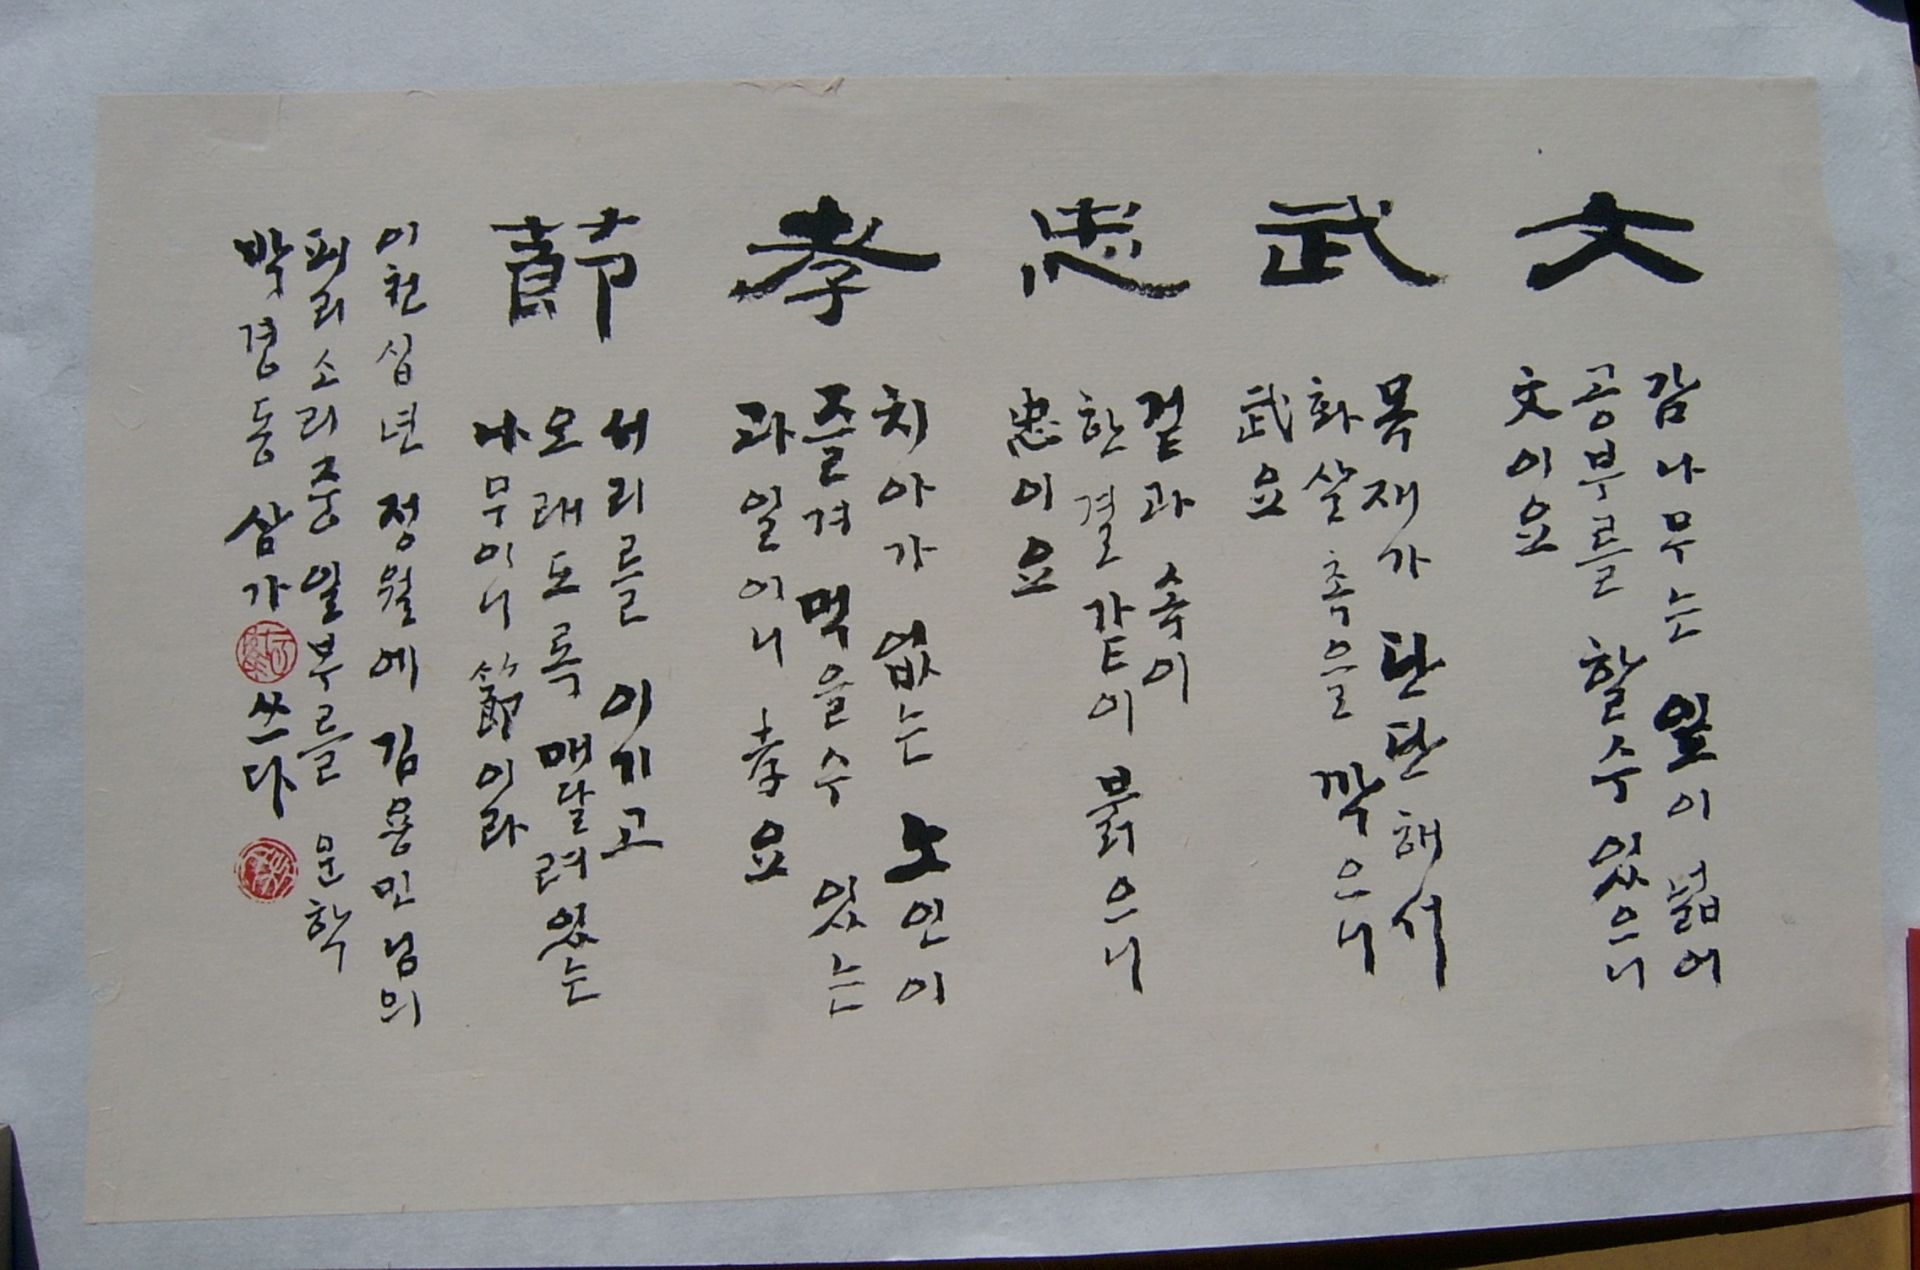 文
감나무는 잎이 넓어
공부를 할수있으니
文이요
武
목재가 단단해서
화살촉을 깎으니
武요
忠
겉과 속이
한결같이 붉으니
忠이요
孝
치아가 없는 노인이
즐겨 먹을수 있는
과일이니 孝요
節
서리를 이기고
오래도록 매달려있는
나무이니 節이라
이천십년 정월에 김용민님의
피리소리중 일부를 문학
박경동 삼가 쓰다